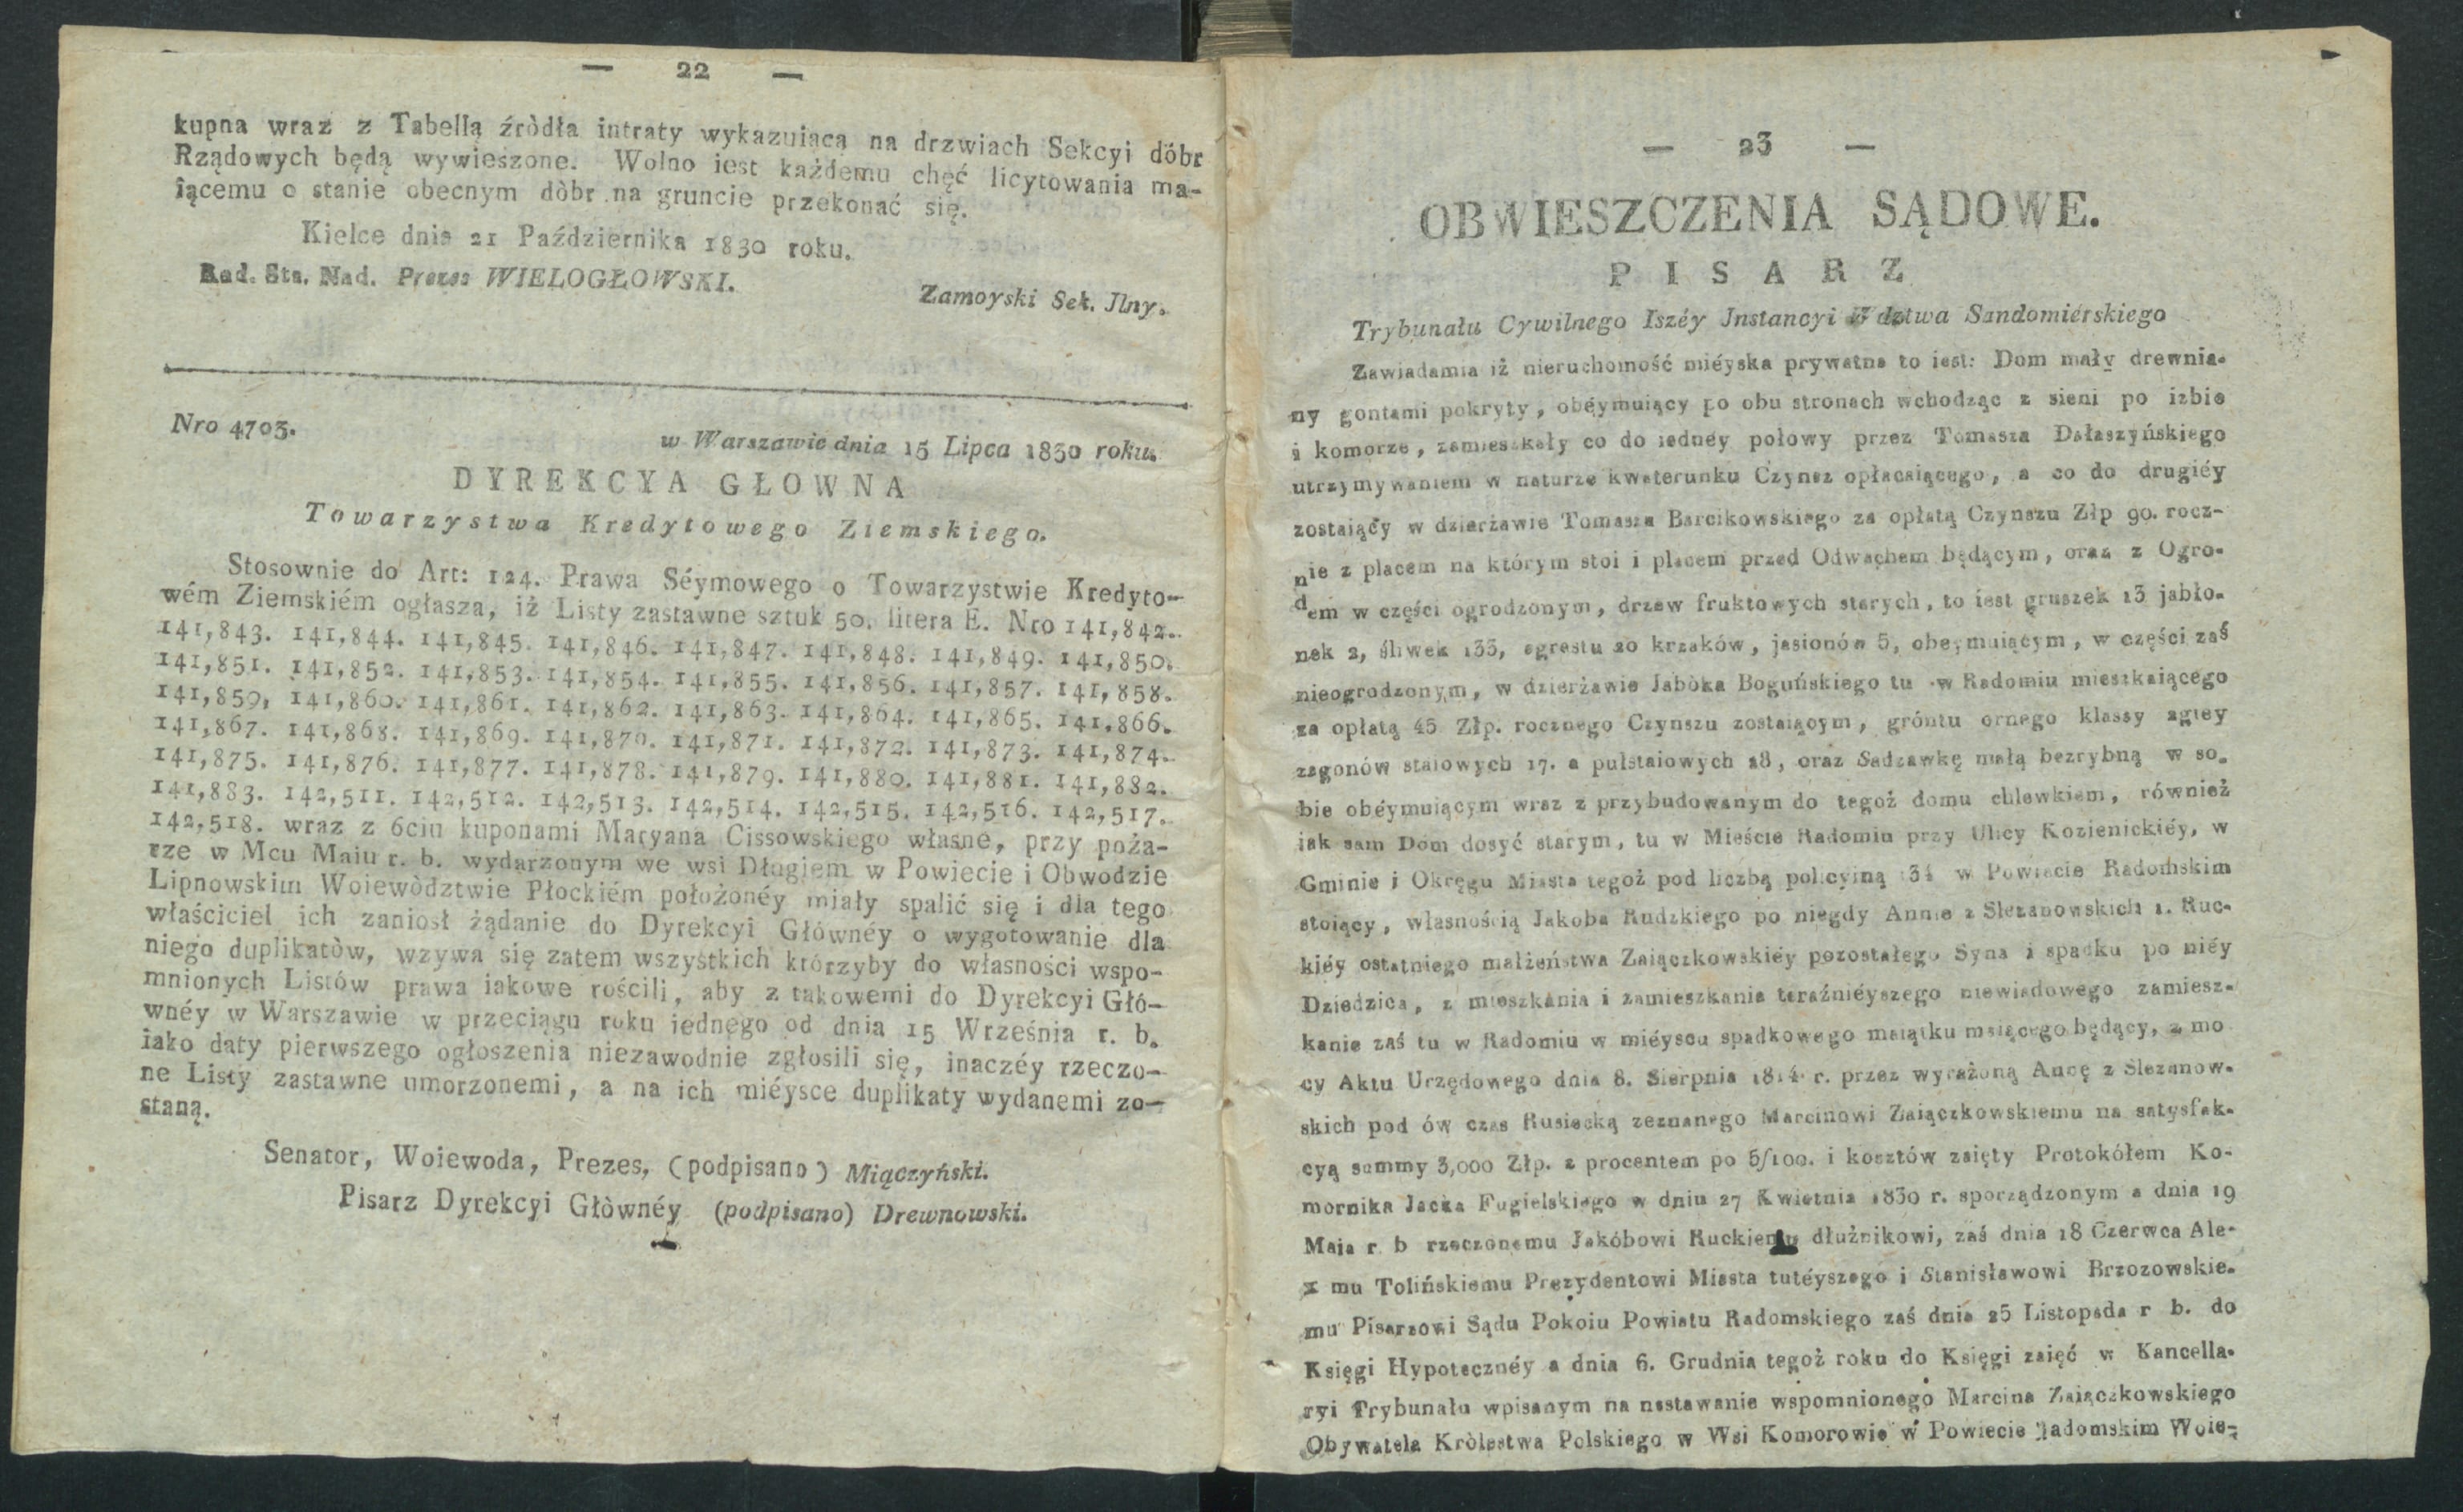 — 22 —
kupna wraz z Tabellą źròdła intraty wykazuiącą na drzwiach Sekcyi dóbr
Rządowych będą wywieszone. Wolno iest każdemu chęć licytowania ma-
iącemu o stanie obecnym dòbr na gruncie przekonać się.
Kielce dnia 21 Października 1830 roku.
Rad. Sta. Nad. Prezes WIELOGŁOWSKI.
Zamoyski Sek. Jlny.
Nro 4703.
w Warszawie dnia 15 Lipca 1830 roku.
DYREKCYA GŁOWNA
Towarzystwa Kredytowego Ziemskiego.
Stosownie do Art: 124. Prawa Séymowego o Towarzystwie Kredyto-
wém Ziemskiém ogłasza, iż Listy zastawne sztuk 50. litera E. Nro 141,842.
141,843. 141,844. 141,845. 141,846. 141,847. 141,848. 141,849. 141,850.
141,851. 141,852. 141,853. 141,854. 141,855. 141,856. 141,857. 141,858.
141,859, 141,860. 141,861. 141,862. 141,863. 141,864. 141,865. 141,866.
141,867. 141,868. 141,869. 141,870. 141,871. 141,872. 141,873. 141,874.
141,875. 141,876. 141,877. 141,878. 141,879. 141,880. 141,881. 141,882.
141,883. 142,511. 142,512. 142,513. 142,514. 142,515. 142,516. 142,517.
142,518. wraz z 6ciu kuponami Maryana Cissowskiego własne, przy poża-
rze w Mcu Maiu r. b. wydarzonym we wsi Długiem w Powiecie i Obwodzie
Lipnowskim Woiewòdztwie Płockiém położonéy miały spalić się i dla tego
właściciel ich zaniosł żądanie do Dyrekcyi Głównéy o wygotowanie dla
niego duplikatòw, wzywa się zatem wszystkich którzyby do własności wspo-
mnionych Listów prawa iakowe rościli, aby z takowemi do Dyrekcyi Głó-
wnéy w Warszawie w przeciągu roku iednego od dnia 15 Września r. b.
iako daty pierwszego ogłoszenia niezawodnie zgłosili się, inaczéy rzeczo-
ne Listy zastawne umorzonemi, a na ich miéysce duplikaty wydanemi zo-
staną.
Senator, Woiewoda, Prezes, (podpisano) Miączyński.
Pisarz Dyrekcyi Głòwnéy (podpisano) Drewnowski.
— 23 —
OBWIESZCZENIA SĄDOWE.
PISARZ
Trybunału Cywilnego Iszéy Jnstancyi Wdztwa Sandomiérskiego
Zawiadamia iż nieruchomość miéyska prywatna to iest: Dom mały drewnia-
ny gontami pokryty, obéymuiący po obu stronach wchodząc z sieni po izbie
i komorze, zamieszkały co do iednéy połowy przez Tomasza Dałaszyńskiego
utrzymywaniem w naturze kwaterunku Czynsz opłacaiącego, a co do drugiéy
zostaiąćy w dzierżawie Tomasza Barcikowskiego za opłatą Czynszu Złp 90. rocz-
nie z placem na którym stoi i placem przed Odwachem będącym, oraz z Ogro-
dem w części ogrodzonym, drzew fruktowych starych, to iest gruszek 13 jabło-
nek 2, śliwek 133, agrestu 20 krzaków, jasionów 5, obeymuiącym, w części zaś
nieogrodzonym, w dzierżawie Jabòka Boguńskiego tu w Radomiu mieszkaiącego
za opłatą 45 Złp. rocznego Czynszu zostaiącym, gróntu ornego klassy 2giey
zagonów staiowych 17. a pułstaiowych 28, oraz Sadzawkę małą bezrybną w so-
bie obéymuiącym wraz z przybudowanym do tegoż domu chlewkiem, również
iak sam Dom dosyć starym, tu w Mieście Radomiu przy Ulicy Kozienickiéy, w
Gminie i Okręgu Miasta tegoż pod liczbą policyiną w Powiecie Radomskim
stoiący, własnością Jakoba Rudzkiego po niegdy Annie z Slezanowskich 1. Ruc-
kiéy ostatniego małżeństwa Zaiączkowskiéy pozostałego Syna i spadku po niéy
Dziedzica, z mieszkania i zamieszkania teraźniéyszego niewiadowego zamiesz-
kanie zaś tu w Radomiu w miéyscu spadkowego maiątku maiącego będący, z mo
cy Aktu Urzędowego dnia 8. Sierpnia 1814 r. przez wyrażoną Annę z Slezanow-
skich pod ów czas Rusiecką zeznanego Marcinowi Zaiączkowskiemu na satysfak-
cyą summy 3,000 Złp. z procentem po 5/100. i kosztów zaięty Protokółem Ko-
mornika Jacka Fugielskiego w dniu 27 Kwietnia 1830 r. sporządzonym a dnia 19
Maia r b rzeczonemu Jakóbowi Ruckiemu dłużnikowi, zaś dnia 18 Czerwca Ale-
x mu Tolińskiemu Prezydentowi Miasta tutéyszego i Stanisławowi Brzozowskie-
mu Pisarzowi Sądu Pokoiu Powiatu Radomskiego zaś dnia 25 Listopada r b. do
Księgi Hypotecznéy a dnia 6. Grudnia tegoż roku do Księgi zaięć w Kancella-
ryi Trybunału wpisanym na nastawanie wspomnionego Marcina Zaiączkowskiego
Obywatela Kròlestwa Polskiego w Wsi Komorowie w Powiecie Radomskim Woie-